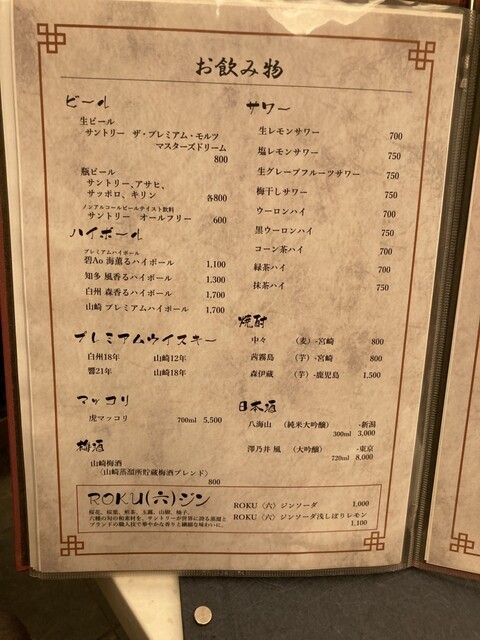 お飲み物
ビール
生ビール
サントリー ザ・プレミアム・モルツ
マスターズドリーム
800
瓶ビール
サントリー、アサヒ、
サッポロ、キリン 各800
ノンアルコールビールテイスト飲料
サントリー オールフリー 600
ハイボール
プレミアムハイボール
碧Ao 海薫るハイボール 1,100
知多 風香るハイボール 1,300
白州 森香るハイボール 1,700
山崎 プレミアムハイボール 1,700
プレミアムウイスキー
白州18年 山崎12年
響21年 山崎18年
マッコリ
虎マッコリ 700ml 5,500
梅酒
山崎梅酒
〈山崎蒸留所貯蔵梅酒ブレンド〉
800
サワー
生レモンサワー 700
塩レモンサワー 750
生グレープフルーツサワー 750
梅干しサワー 750
ウーロンハイ 700
黒ウーロンハイ 750
コーン茶ハイ 700
緑茶ハイ 700
抹茶ハイ 750
焼酎
中々 (麦)-宮崎 800
茜霧島 (芋)-宮崎 800
森伊蔵 (芋)-鹿児島 1,500
日本酒
八海山 (純米大吟醸) -新潟
300ml 3,000
澤乃井 凰 (大吟醸) -東京
720ml 8,000
ROKU(六)ジン
桜花、桜葉、煎茶、玉露、山椒、柚子。
六種の旬の和素材を、サントリーが世界に誇る蒸留と
ブランドの職人技で華やかな香りと繊細な味わいに。
ROKU〈六〉ジンソーダ 1,000
ROKU〈六〉ジンソーダ浅しぼりレモン
1,100